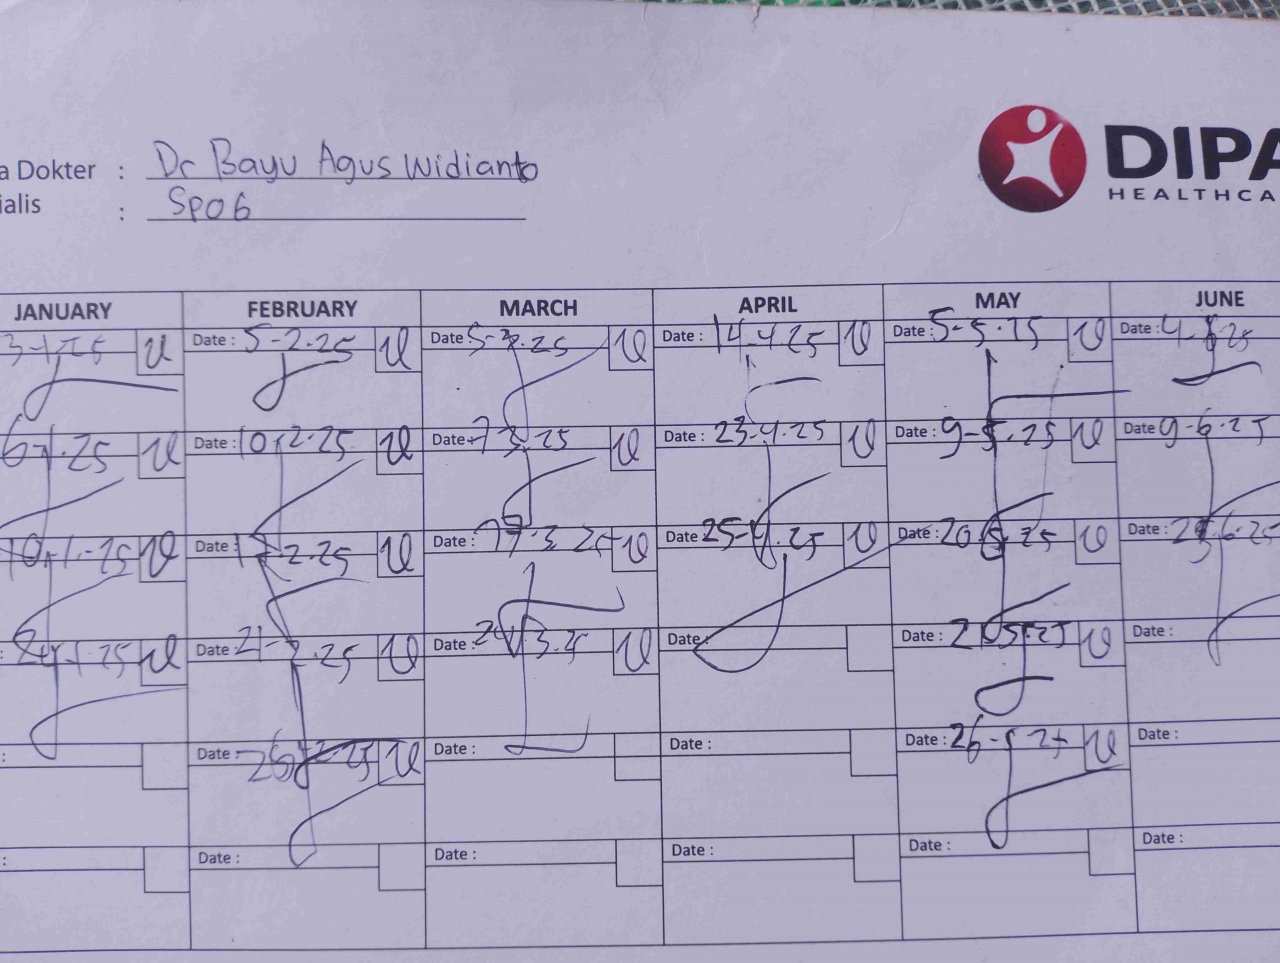 a Dokter : Dr Bayu Agus Widianto
ialis : SPOG
DIPA
HEALTHCA
JANUARY FEBRUARY MARCH APRIL MAY JUNE
3-1-25 Date : 5-2-25 Date : 5-3-25 Date : 14-4-25 Date : 5-5-25 Date : 4-6-25
6-1-25 Date : 10-2-25 Date : 7-3-25 Date : 23-4-25 Date : 9-5-25 Date 9-6-25
10-1-25 Date : Date : Date 25-4-25 Date : 20-5-25 Date :
24-1-25 Date : 21-2-25 Date : 24-3-25 Date : Date : Date :
: Date : 26-2-25 Date : Date : Date : 26-5-25 Date :
: Date : Date : Date : Date : Date :